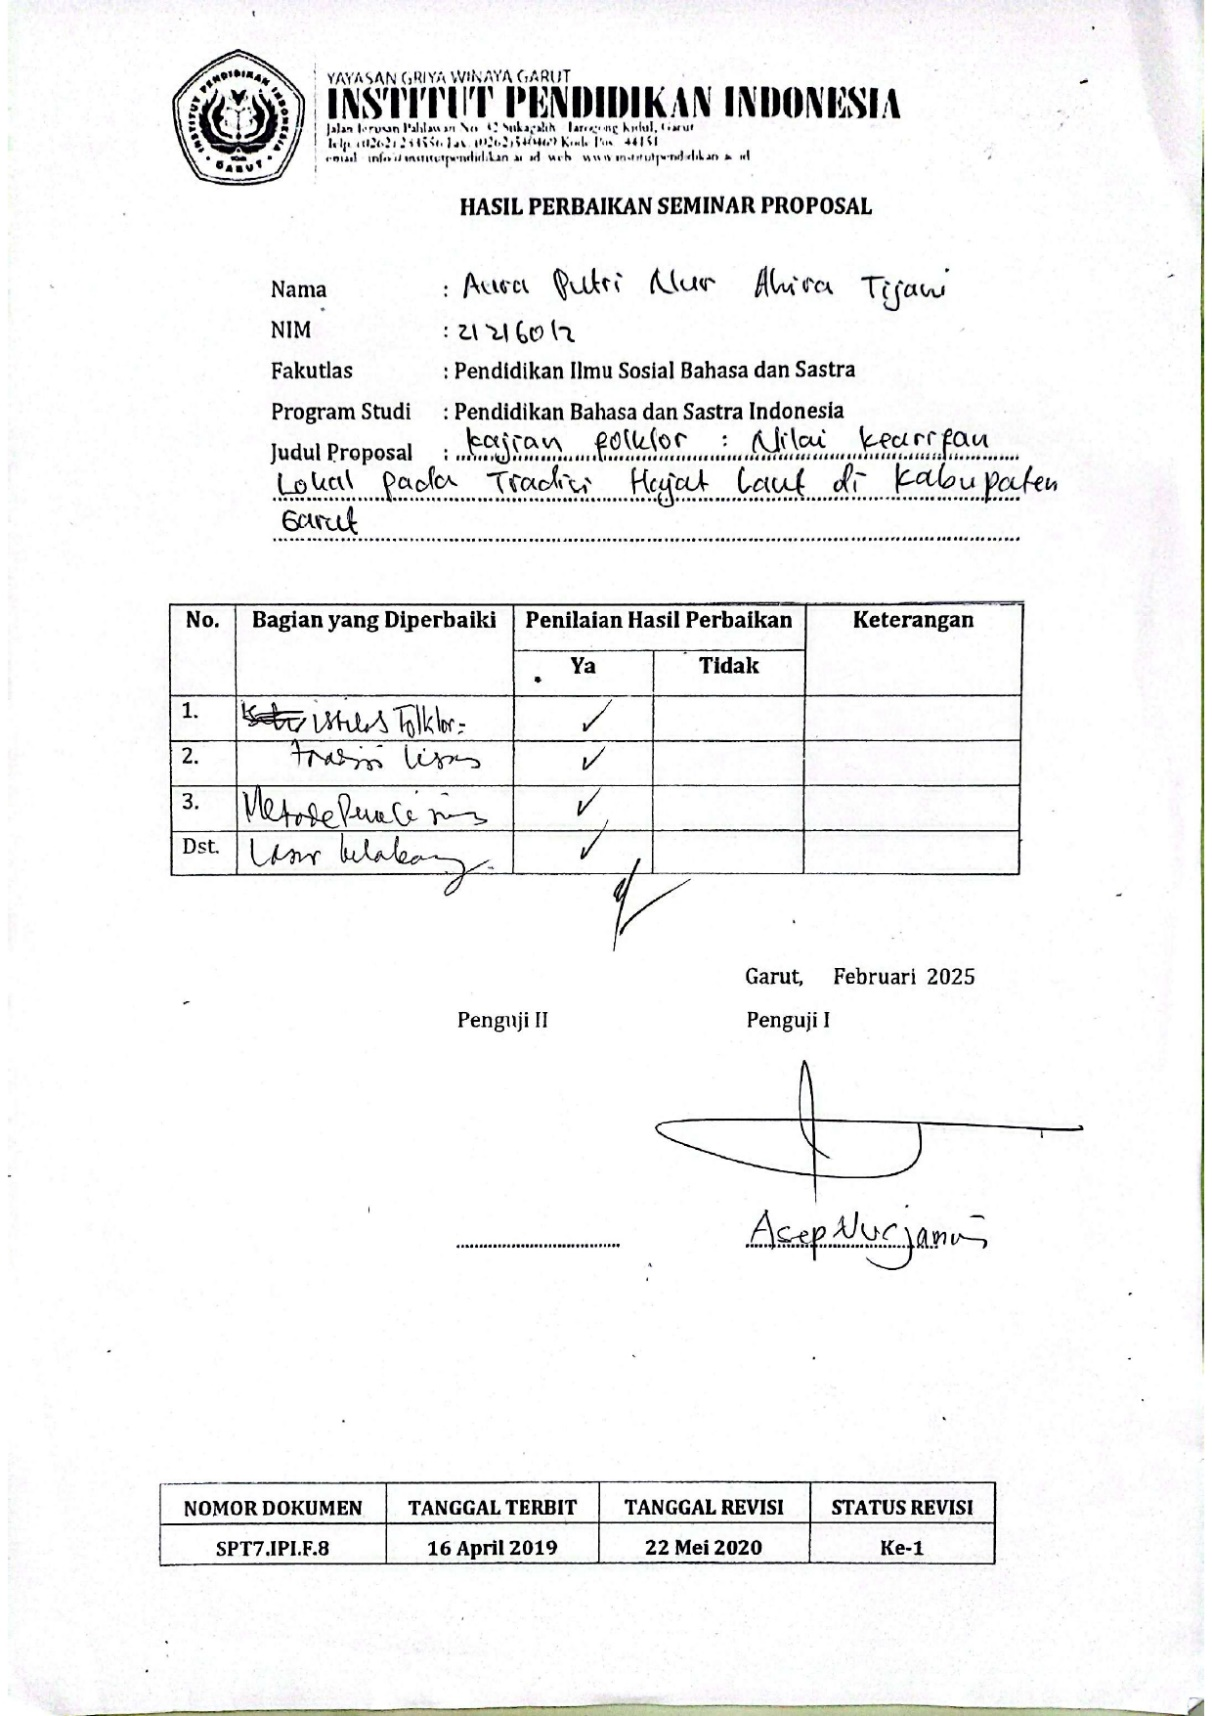 YAYASAN GRIYA WINAYA GARUT
INSTITUT PENDIDIKAN INDONESIA
Jalan Terusan Pahlawan No. 32 Sukagalih Tarogong Kidul, Garut
Telp. (0262) 233556 Fax. (0262) 540469 Kode Pos 44151
email info@institutpendidikan.ac.id web www.institutpendidikan.ac.id
INSTITUT PENDIDIKAN INDONESIA
GARUT
HASIL PERBAIKAN SEMINAR PROPOSAL
Nama : Aura Putri Nur Ahira Tijani
NIM : 21216012
Fakutlas : Pendidikan Ilmu Sosial Bahasa dan Sastra
Program Studi : Pendidikan Bahasa dan Sastra Indonesia
Judul Proposal : Kajian folklor : Nilai kearifan
Lokal pada Tradisi Hajat Laut di Kabupaten
Garut
No. Bagian yang Diperbaiki Penilaian Hasil Perbaikan Keterangan
Ya Tidak
1. istilah Folklor- ✓
2. tradisi lisan ✓
3. Metode Penelitian ✓
Dst. Latar belakang. ✓
Garut, Februari 2025
Penguji II Penguji I
Asep Nurjamin
NOMOR DOKUMEN TANGGAL TERBIT TANGGAL REVISI STATUS REVISI
SPT7.IPI.F.8 16 April 2019 22 Mei 2020 Ke-1